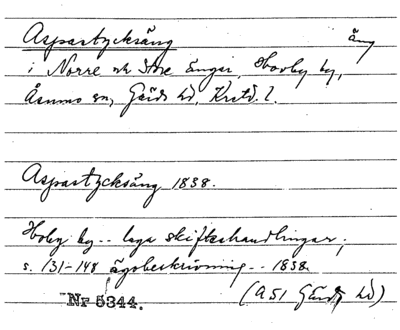 Aspastycksäng äng
i Norre och Söre ängar, Hovby by,
Åsumo sn, Gärds hd, Krstd. l.
Aspastycksäng 1838.
Hoby by .. laga skifteshandlingar;
s. 131-148 ägobeskrivning .. 1838.
Nr 5344. (A 51 Gärds hd)